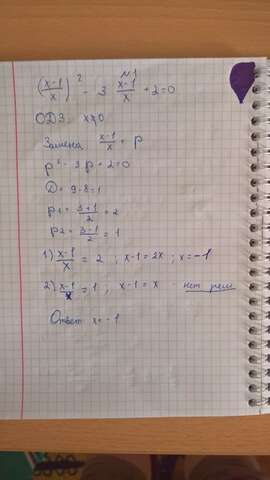 №1
(x-1/x)² - 3 x-1/x + 2 = 0
ОДЗ. x≠0
Замена x-1/x = p
p² - 3p + 2 = 0
D = 9 - 8 = 1
p1 = 3+1/2 = 2
p2 = 3-1/2 = 1
1) x-1/x = 2 ; x-1 = 2x ; x = -1
2) x-1/x = 1 ; x-1 = x нет реш
Ответ x = -1